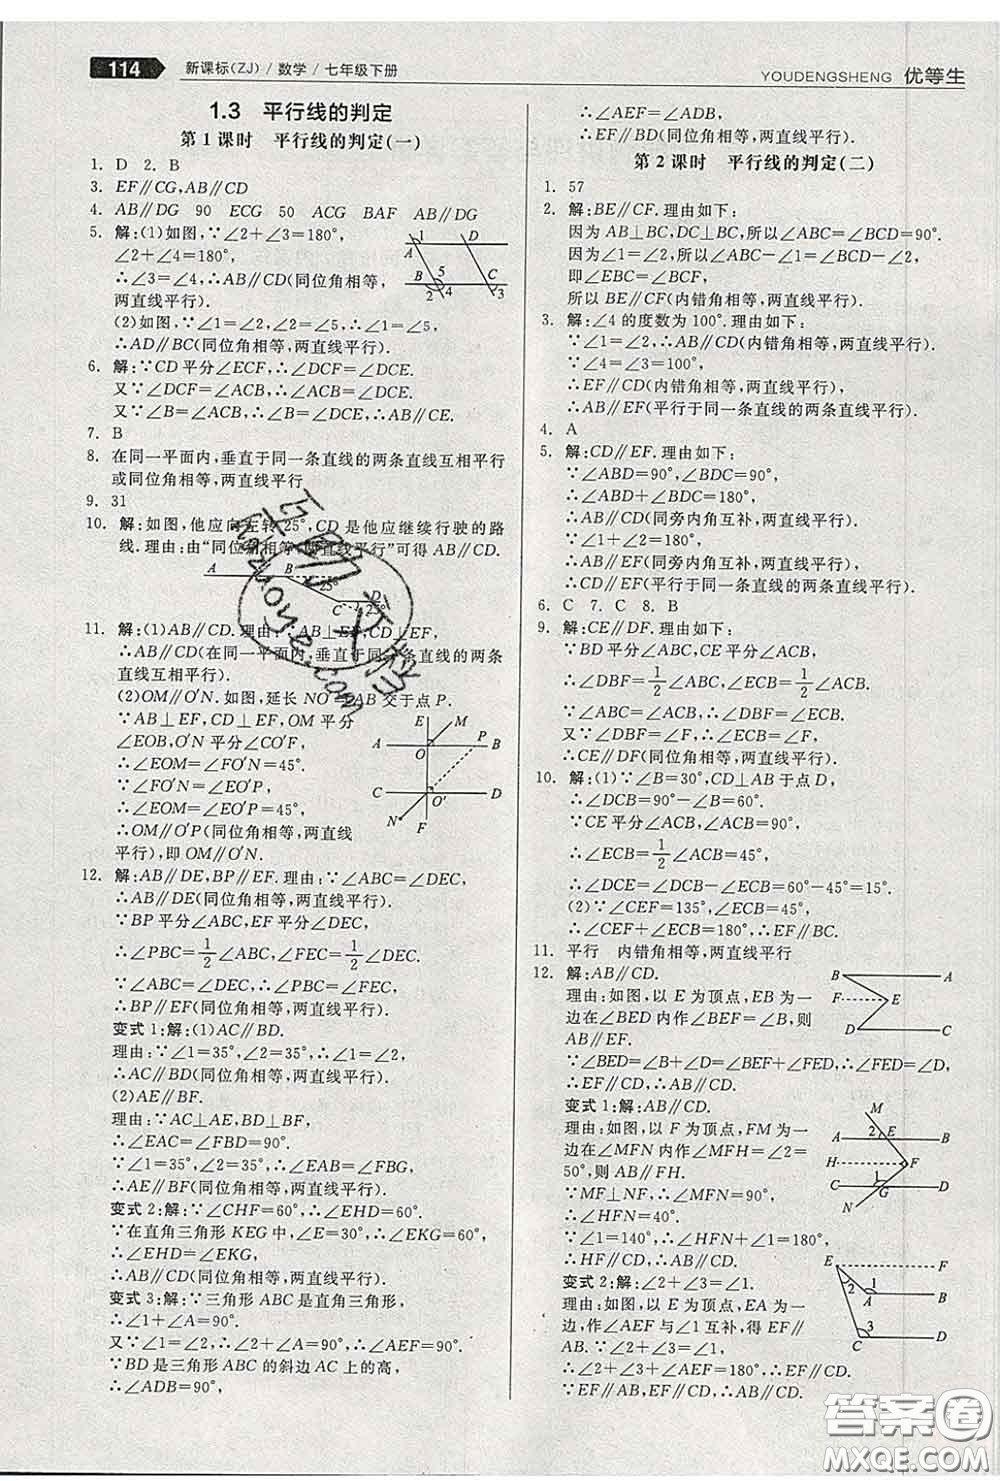 114 新课标(ZJ)/数学/七年级下册
YOUDENGSHENG 优等生
1.3 平行线的判定
第1课时 平行线的判定(一)
1. D 2. B
3. EF∥CG,AB∥CD
4. AB∥DG 90 ECG 50 ACG BAF AB∥DG
5. 解:(1)如图,∵∠2+∠3=180°,
∠2+∠4=180°,
∴∠3=∠4,∴AB∥CD(同位角相等,
两直线平行).
(2)如图,∵∠1=∠2,∠2=∠5,∴∠1=∠5,
∴AD∥BC(同位角相等,两直线平行).
6. 解:∵CD平分∠ECF,∴∠DCF=∠DCE.
又∵∠DCF=∠ACB,∴∠DCE=∠ACB.
又∵∠B=∠ACB,∴∠B=∠DCE,∴AB∥CE.
7. B
8. 在同一平面内,垂直于同一条直线的两条直线互相平行
或同位角相等,两直线平行
9. 31
10. 解:如图,他应向左转25°,CD是他应继续行驶的路
线.理由:由“同位角相等,两直线平行”可得AB∥CD.
A B 25° C D 25°
11. 解:(1)AB∥CD.理由:∵AB⊥EF,CD⊥EF,
∴AB∥CD(在同一平面内,垂直于同一条直线的两条
直线互相平行).
(2)OM∥O′N.如图,延长NO′与AB交于点P.
∵AB⊥EF,CD⊥EF,OM平分
∠EOB,O′N平分∠CO′F,
∴∠EOM=∠FO′N=45°.
∵∠FO′N=∠EO′P,
∴∠EOM=∠EO′P=45°,
∴OM∥O′P(同位角相等,两直线
平行),即OM∥O′N.
12. 解:AB∥DE,BP∥EF.理由:∵∠ABC=∠DEC,
∴AB∥DE(同位角相等,两直线平行).
∵BP平分∠ABC,EF平分∠DEC,
∴∠PBC=1/2∠ABC,∠FEC=1/2∠DEC.
∵∠ABC=∠DEC,∴∠PBC=∠FEC,
∴BP∥EF(同位角相等,两直线平行).
变式1:解:(1)AC∥BD.
理由:∵∠1=35°,∠2=35°,∴∠1=∠2,
∴AC∥BD(同位角相等,两直线平行).
(2)AE∥BF.
理由:∵AC⊥AE,BD⊥BF,
∴∠EAC=∠FBD=90°.
∵∠1=35°,∠2=35°,∴∠EAB=∠FBG,
∴AE∥BF(同位角相等,两直线平行).
变式2:解:∵∠CHF=60°,∴∠EHD=60°.
∵在直角三角形KEG中,∠E=30°,∴∠EKG=60°,
∴∠EHD=∠EKG,
∴AB∥CD(同位角相等,两直线平行).
变式3:解:∵三角形ABC是直角三角形,
∴∠1+∠A=90°.
又∵∠1=∠2,∴∠2+∠A=90°,∴∠AEF=90°.
∵BD是三角形ABC的斜边AC上的高,
∴∠ADB=90°,
∴∠AEF=∠ADB,
∴EF∥BD(同位角相等,两直线平行).
第2课时 平行线的判定(二)
1. 57
2. 解:BE∥CF.理由如下:
因为AB⊥BC,DC⊥BC,所以∠ABC=∠BCD=90°.
因为∠1=∠2,所以∠ABC-∠1=∠BCD-∠2,
即∠EBC=∠BCF,
所以BE∥CF(内错角相等,两直线平行).
3. 解:∠4的度数为100°.理由如下:
∵∠1=∠2,∴AB∥CD(内错角相等,两直线平行).
∵∠4=∠3=100°,
∴EF∥CD(内错角相等,两直线平行),
∴AB∥EF(平行于同一条直线的两条直线平行).
4. A
5. 解:CD∥EF.理由如下:
∵∠ABD=90°,∠BDC=90°,
∴∠ABD+∠BDC=180°,
∴AB∥CD(同旁内角互补,两直线平行).
∵∠1+∠2=180°,
∴AB∥EF(同旁内角互补,两直线平行),
∴CD∥EF(平行于同一条直线的两条直线平行).
6. C 7. C 8. B
9. 解:CE∥DF.理由如下:
∵BD平分∠ABC,CE平分∠ACB,
∴∠DBF=1/2∠ABC,∠ECB=1/2∠ACB.
∵∠ABC=∠ACB,∴∠DBF=∠ECB.
又∵∠DBF=∠F,∴∠ECB=∠F,
∴CE∥DF(同位角相等,两直线平行).
10. 解:(1)∵∠B=30°,CD⊥AB于点D,
∴∠DCB=90°-∠B=60°.
∵CE平分∠ACB,∠ACB=90°,
∴∠ECB=1/2∠ACB=45°,
∴∠DCE=∠DCB-∠ECB=60°-45°=15°.
(2)∵∠CEF=135°,∠ECB=45°,
∴∠CEF+∠ECB=180°,∴EF∥BC.
11. 平行 内错角相等,两直线平行
12. 解:AB∥CD.
理由:如图,以E为顶点,EB为一
边在∠BED内作∠BEF=∠B,则
AB∥EF.
∵∠BED=∠B+∠D=∠BEF+∠FED,∴∠FED=∠D,
∴CD∥EF,∴AB∥CD.
变式1:解:AB∥CD.
理由:如图,以F为顶点,FM为一
边在∠MFN内作∠MFH=∠2=
50°,则AB∥FH.
∵MF⊥NF,∴∠MFN=90°,
∴∠HFN=40°.
∵∠1=140°,∴∠HFN+∠1=180°,
∴HF∥CD,∴AB∥CD.
变式2:解:∠2+∠3=∠1.
理由:如图,以E为顶点,EA为一
边作∠AEF与∠1互补,得EF∥
AB.∵∠2+∠3=∠1,
∴∠2+∠3+∠AEF=180°,∴EF∥CD.
∵EF∥AB,EF∥CD,∴AB∥CD.
答案圈
MXQE.COM